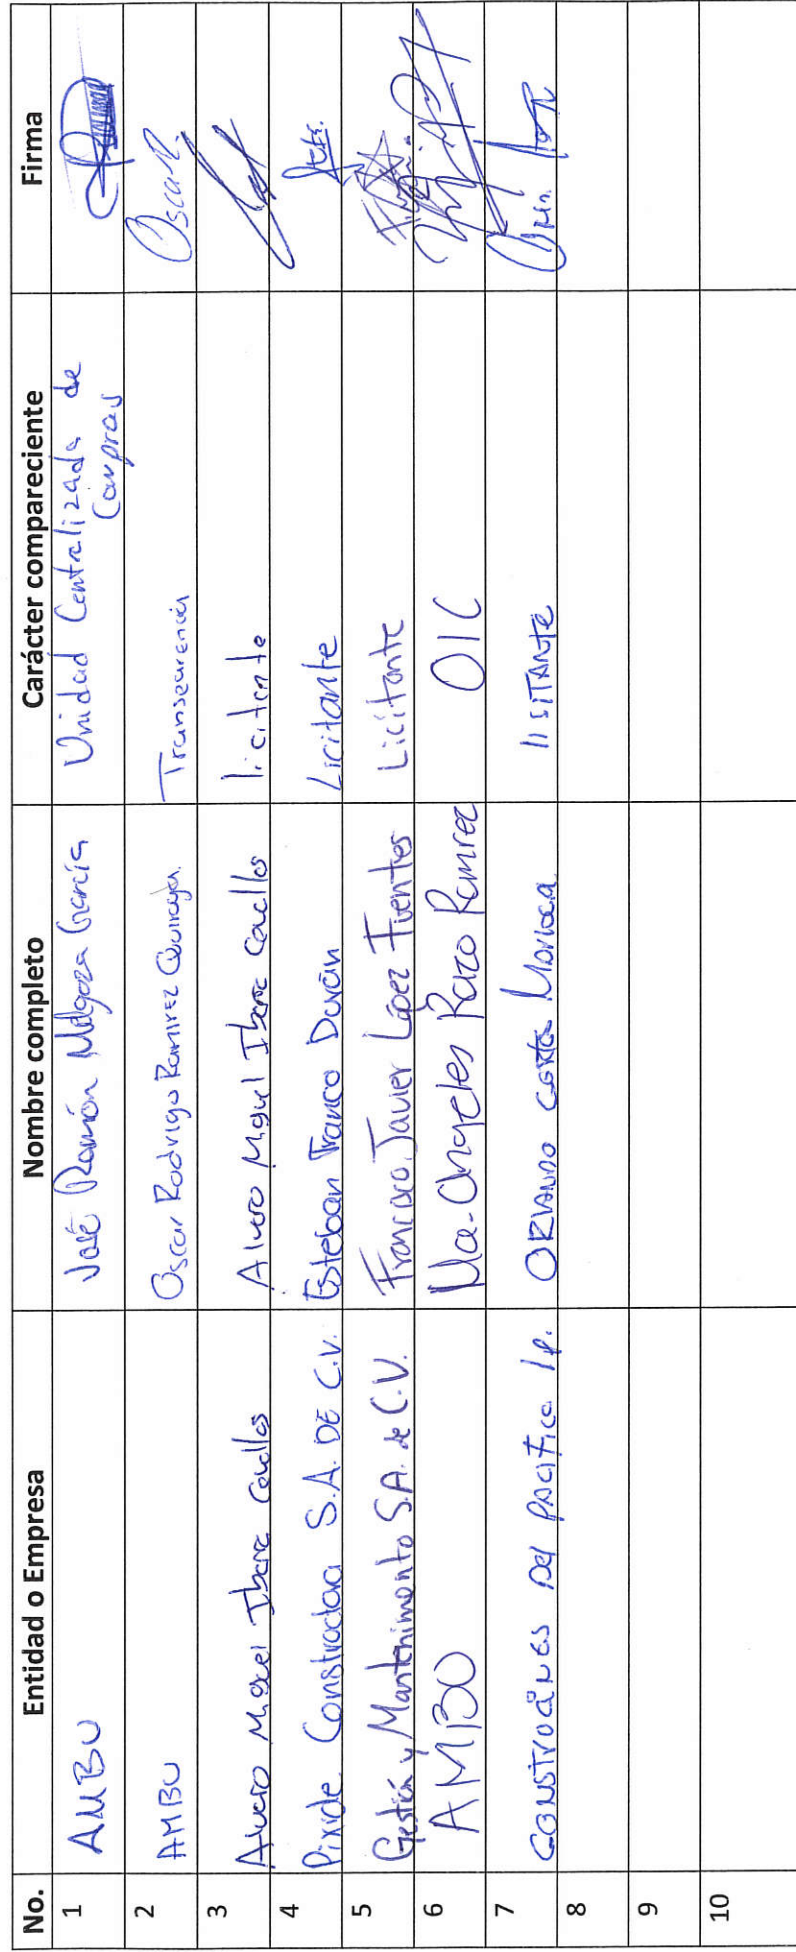 No. Entidad o Empresa Nombre completo Carácter compareciente Firma
1 AMBU José Ramón Melgoza García Unidad Centralizada de
Compras
2 AMBU Oscar Rodrigo Ramirez Transparencia Oscar R.
3 Alvaro Miguel Ibarra Ceballos Alvaro Miguel Ibarra Ceballos licitante
4 Pixide Constructora S.A. DE C.V. Esteban Franco Durán Licitante
5 Gestión y Mantenimento S.A. de C.V. Francisco Javier López Fuentes Licitante
6 AMBU Ma. Angeles Razo Ramirez OIC
7 CONSTRUCCIONES Del pacifico ORLANDO licitante
8
9
10